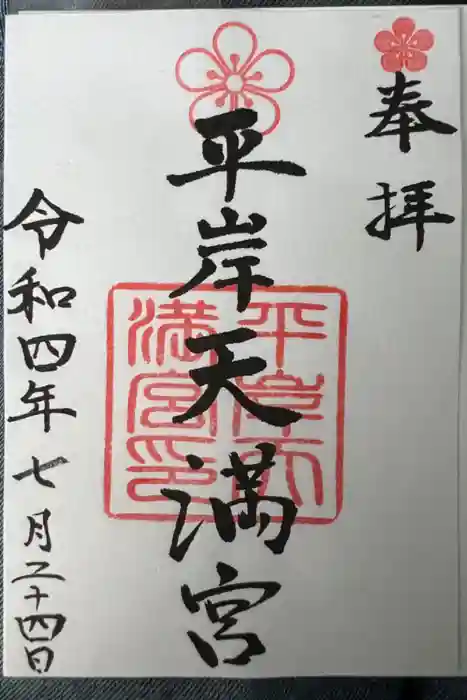 奉拝
平岸天満宮
平岸天
満宮印
令和四年七月二十四日